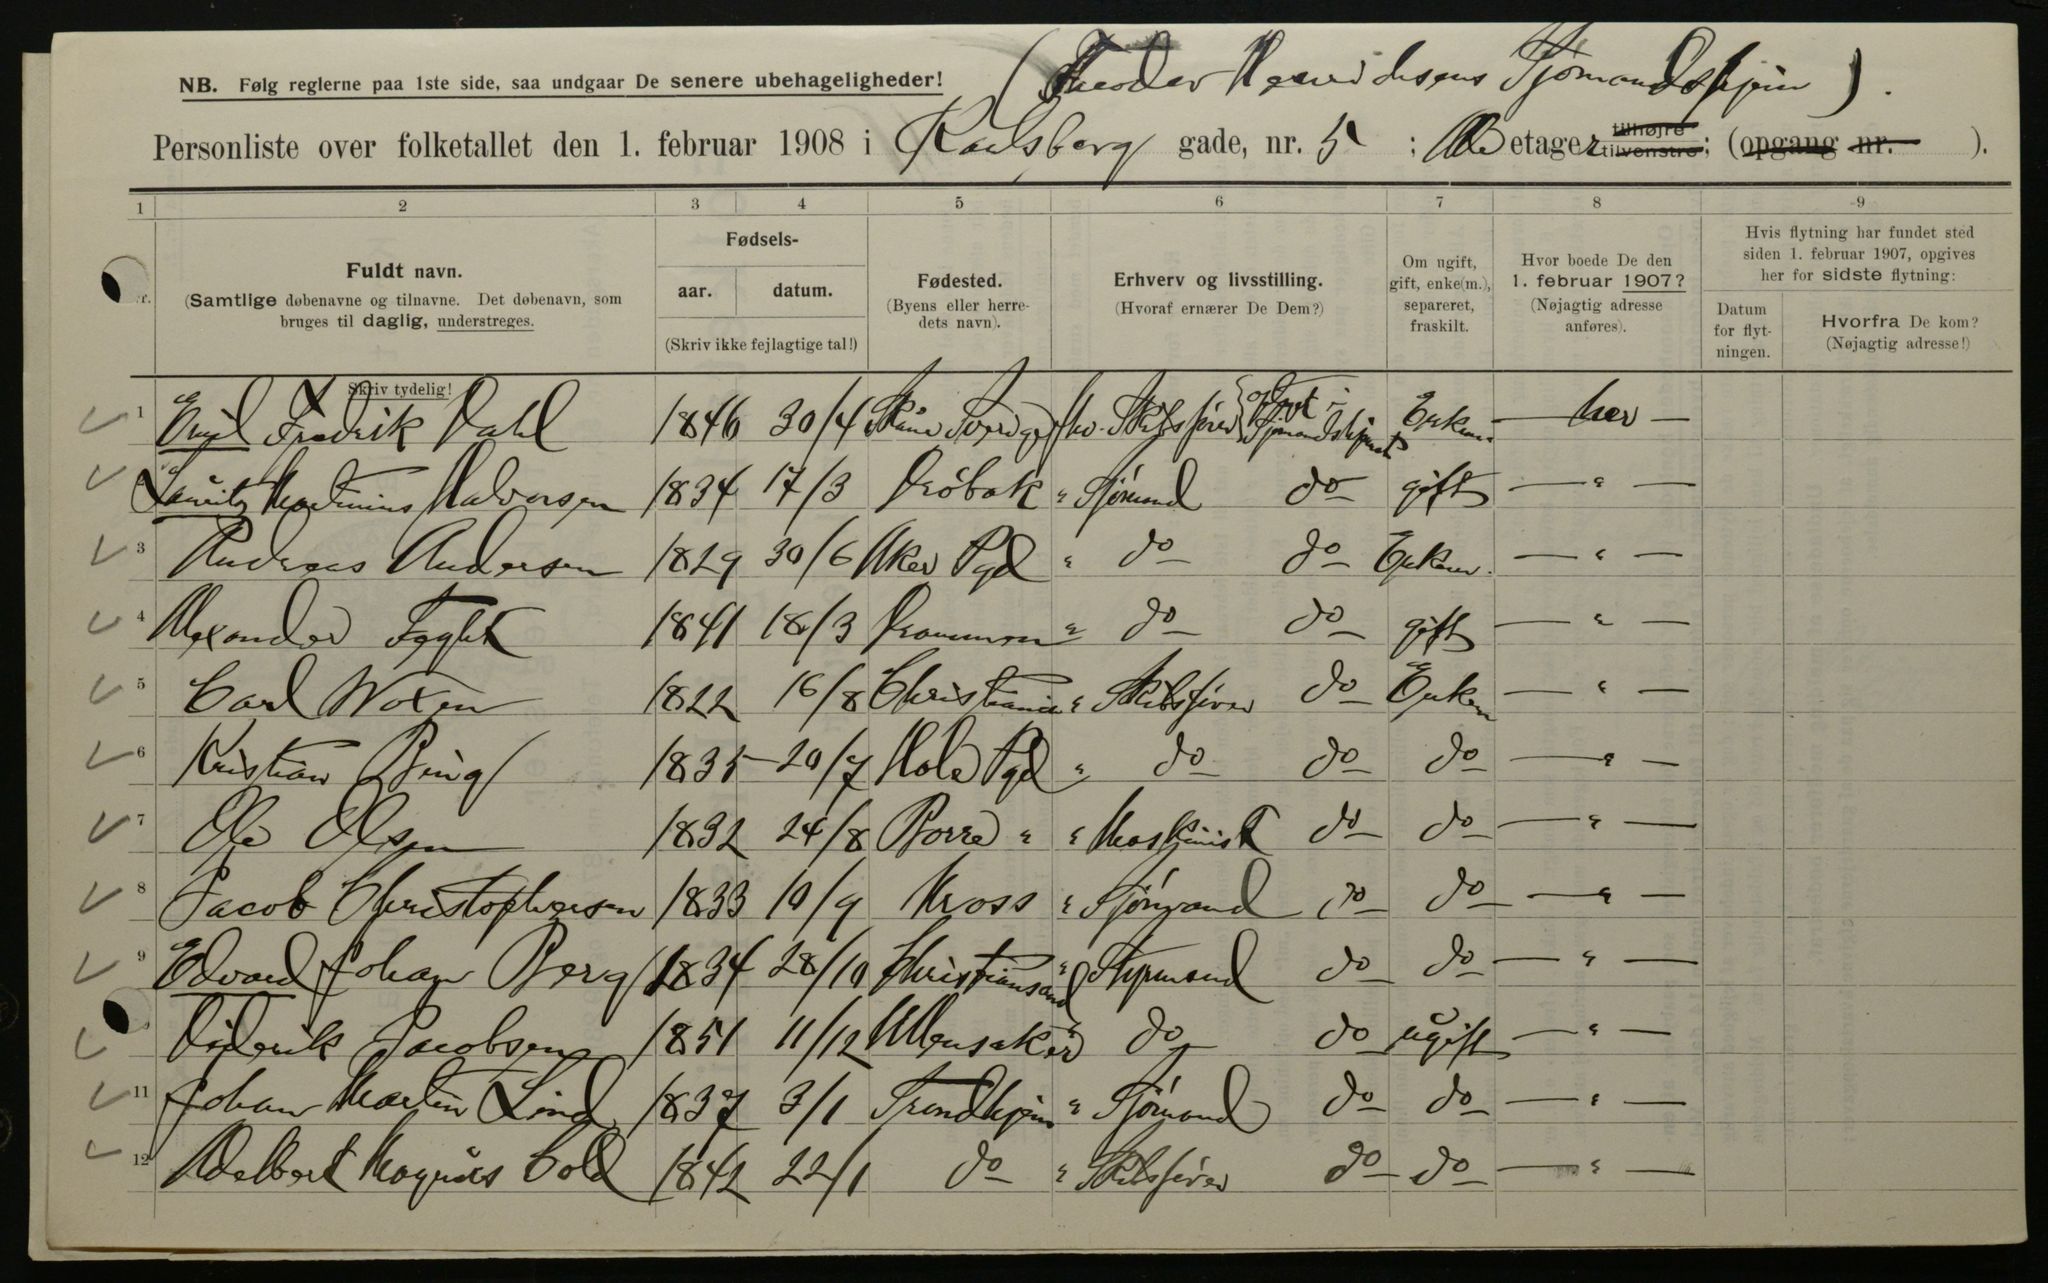 (Theodor Henrichsens Sjømandshjem).
NB. Følg reglerne paa 1ste side, saa undgaar De senere ubehageligheder!
Personliste over folketallet den 1. februar 1908 i Karlsborg gade, nr. 5 ; Alle etager tilhøjre tilvenstre; (opgang nr. ).
1 2 3 4 5 6 7 8 9
Fuldt navn.
(Samtlige døbenavne og tilnavne. Det døbenavn, som
bruges til daglig, understreges.
Skriv tydelig!
Fødsels-
aar. datum.
(Skriv ikke fejlagtige tal!)
Fødested.
(Byens eller herre-
dets navn).
Erhverv og livsstilling.
(Hvoraf ernærer De Dem?)
Om ugift,
gift, enke(m.),
separeret,
fraskilt.
Hvor boede De den
1. februar 1907?
(Nøjagtig adresse
anføres).
Hvis flytning har fundet sted
siden 1. februar 1907, opgives
her for sidste flytning:
Datum
for flyt-
ningen.
Hvorfra De kom?
(Nøjagtig adresse!)
1 Emil Fredrik Dahl 1846 30/4 Skåne Sverige fhv. Skibsfører Sjømandshjemt Enkem. — her —
Lauritz Martinius Halvorsen 1834 17/3 Drøbak " Sjømand do gift — " —
3 Andreas Andersen 1829 30/6 Aker Pgd " do do Enkem. — " —
4 Alexander Fagt 1841 18/3 Drammen " do do gift — " —
5 Carl Woxen 1822 16/8 Christiania " Skibsfører do Enkem — " —
6 Kristian Bing 1835 20/7 Hole Pgd " do do do — " —
7 Ole Olsen 1832 24/8 Borre " " Maskinist do do — " —
8 Jacob Christophersen 1833 10/9 Moss " Sjømand do do — " —
9 Edvard Johan Berg 1834 28/10 Christiansand " Styrmand do do — " —
Diderik Jacobsen 1851 11/12 Ullensaker " do do ugift — " —
11 Johan Martin Lind 1837 3/1 Trondhjem " Sjømand do do — " —
12 Adelbert Magnus Cold 1842 22/1 do " Skibsfører do do — " —